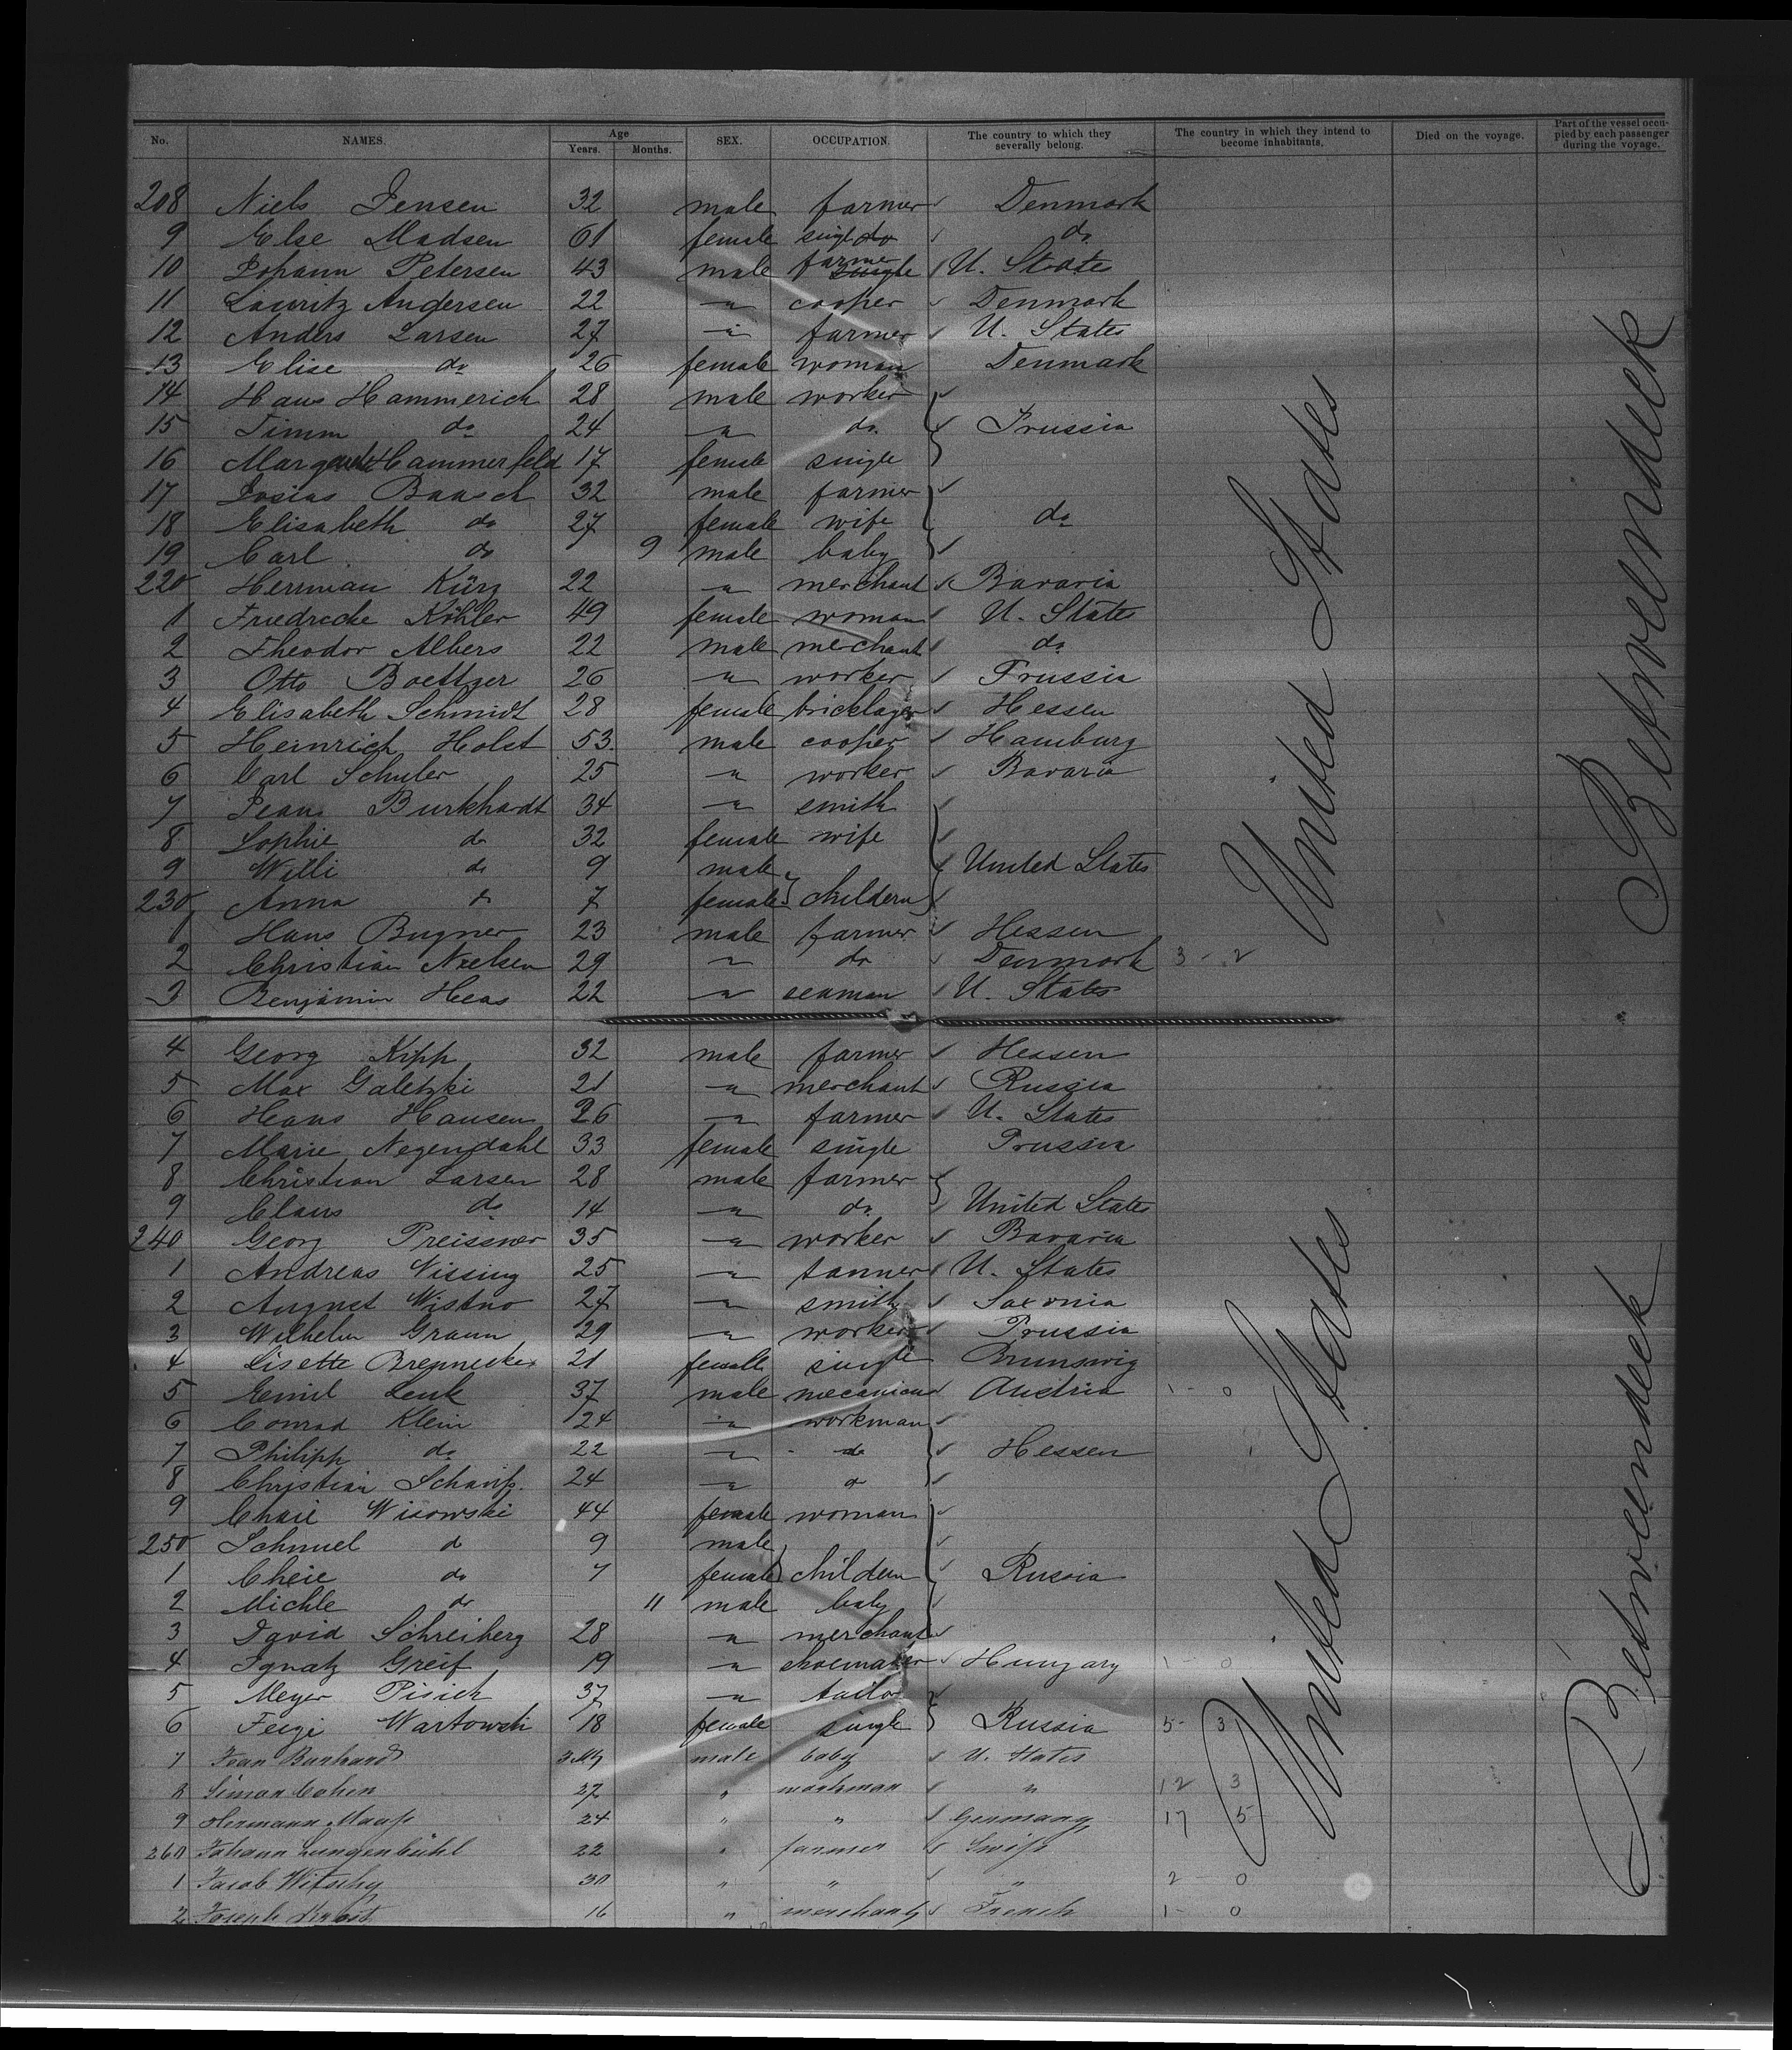 No. NAMES. Age Years. Months. SEX. OCCUPATION. The country to which they severally belong. The country in which they intend to become inhabitants. Died on the voyage. Part of the vessel occupied by each passenger during the voyage.
208 Niels Jensen 32 male farmer Denmark
9 Else Madsen 61 female single do
10 Johann Petersen 43 male farmer U. States
11 Lauritz Andersen 22 " cooper Denmark
12 Anders Larsen 27 " farmer U. States
13 Elise do 26 female woman Denmark
14 Hans Hammerich 28 male worker
15 Timm do 24 " do Prussia
16 Hammerfeld 17 female single
17 Josias Baasch 32 male farmer
18 Elisabeth do 27 female wife do
19 Carl do 9 male baby
220 Herrman Kürz 22 " merchant Bavaria
1 Friedricke Köhler 49 female woman U. States
2 Theodor Albers 22 male merchant do
3 Otto Boettger 26 " worker Prussia
4 Elisabeth Schmidt 28 female bricklayer Hessen
5 Heinrich Holst 53 male cooper Hamburg
6 Carl Schuler 25 " worker Bavaria
7 Jean Burkhardt 34 " smith
8 Sophie do 32 female wife
9 Willi do 9 male United States
230 Anna do 7 female childern
1 Hans Bugner 23 male farmer Hessen
2 Christian Nielsen 29 " do Denmark 3 - 2
3 Benjamin Heas 22 " seaman U. States
United States
Betweendeck
4 Georg Kipp 32 male farmer Hessen
5 Max Galetzki 21 " merchant Russia
6 Hans Hansen 26 " farmer U. States
7 Marie Negendahl 33 female single Prussia
8 Christian Larsen 28 male farmer
9 Claus do 14 " do United States
240 Georg Preissner 35 " worker Bavaria
1 Andreas Nissing 25 " tanner U. States
2 August Wistno 27 " smith Saxonia
3 Wilhelm Graun 29 " worker Prussia
4 Lisette Brennecke 21 female single Brunswig
5 Emil Lenk 37 male mecanicus Austria 1 - 0
6 Conrad Klein 24 " workman
7 Philipp do 22 " do Hessen
8 Christian 24 " do
9 Chaie Wisowski 44 female woman
250 Schmuel do 9 male
1 Cheie do 7 female childern Russia
2 Michle do 11 male baby
3 David Schreiberg 28 " merchant
4 Ignatz Greif 19 " shoemaker Hungary 1 - 0
5 Meyer Pisich 37 " tailor
6 Feige Wartowski 18 female single Russia 5 - 3
7 Jean Burhard male baby U. States
8 Simon Cohen 27 " workman " 12 3
9 Hermann 24 " " Germany 17 5
260 Johann Lungenbühl 22 " farmer Swiss
1 Jacob Witschy 30 " " " 2 - 0
2 Joseph 16 " merchant French 1 - 0
United States
Betweendeck